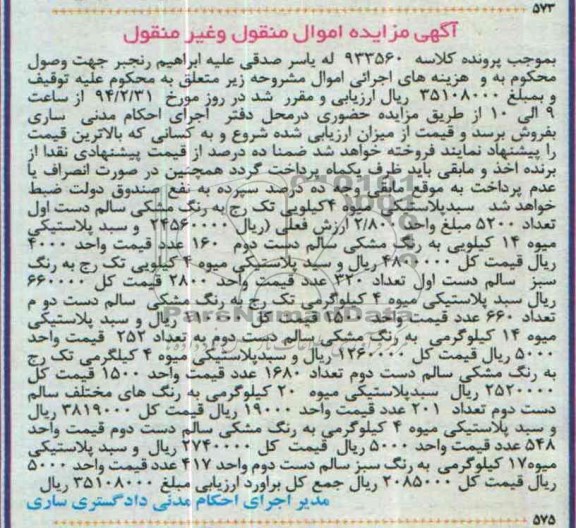 ۵۷۳
آگهی مزایده اموال منقول وغیر منقول
بموجب پرونده کلاسه ۹۳۳۵۶۰ له یاسر صدقی علیه ابراهیم رنجبر جهت وصول
محکوم به و هزینه های اجرائی اموال مشروحه زیر متعلق به محکوم علیه توقیف
و بمبلغ ۳۵۱۰۸۰۰۰ ریال ارزیابی و مقرر شد در روز مورخ ۹۴/۲/۳۱ از ساعت
۹ الی ۱۰ از طریق مزایده حضوری درمحل دفتر اجرای احکام مدنی ساری
بفروش برسد و قیمت از میزان ارزیابی شده شروع و به کسانی که بالاترین قیمت
را پیشنهاد نمایند فروخته خواهد شد ضمنا ده درصد از قیمت پیشنهادی نقدا از
برنده اخذ و مابقی باید ظرف یکماه پرداخت گردد همچنین در صورت انصراف یا
عدم پرداخت به موقع مابقی وجه ده درصد سپرده به نفع صندوق دولت ضبط
خواهد شد سبدپلاستیکی میوه ۴کیلویی تک رج به رنگ مشکی سالم دست اول
تعداد ۵۲۰۰ مبلغ واحد ۲/۸۰۰ ارزش فعلی (ریال ۲۴۵۶۰۰۰۰ و سبد پلاستیکی
میوه ۱۴ کیلویی به رنگ مشکی سالم دست دوم ۱۶۰ عدد قیمت واحد ۴۰۰۰
ریال قیمت کل ۴۸۰۶۰۰۰ ریال و سبد پلاستیکی میوه ۴ کیلویی تک رج به رنگ
سبز سالم دست اول تعداد ۳۲۰ عدد قیمت واحد ۲۸۰۰ قیمت کل ۶۶۰۰۰۰
ریال سبد پلاستیکی میوه ۴ کیلوگرمی تک رج به رنگ مشکی سالم دست دو م
تعداد ۶۶۰ عدد قیمت واحد قیمت کل ریال و سبد پلاستیکی
میوه ۱۴ کیلوگرمی به رنگ مشکی سالم دست دوم به تعداد ۲۵۲ قیمت واحد
۵۰۰۰ ریال قیمت کل ۱۲۶۰۰۰۰ ریال و سبدپلاستیکی میوه ۴ کیلگرمی تک رج
به رنگ مشکی سالم دست دوم تعداد ۱۶۸۰ عدد قیمت واحد ۱۵۰۰ قیمت کل
۲۵۲۰۰۰۰ ریال سبدپلاستیکی میوه ۲۰ کیلوگرمی به رنگ های مختلف سالم
دست دوم تعداد ۲۰۱ عدد قیمت واحد ۱۹۰۰۰ ریال قیمت کل ۳۸۱۹۰۰۰ ریال
و سبد پلاستیکی میوه ۴ کیلوگرمی به رنگ مشکی سالم دست دوم قیمت واحد
۵۴۸ عدد قیمت واحد ۵۰۰۰ ریال قیمت کل ۲۷۴۰۰۰۰ ریال و سبد پلاستیکی
میوه۱۷ کیلوگرمی به رنگ سبز سالم دست دوم واحد ۴۱۷ عدد قیمت واحد ۵۰۰۰
ریال قیمت کل ۲۰۸۵۰۰۰ ریال جمع کل براورد ارزیابی مبلغ ۳۵۱۰۸۰۰۰ ریال
مدیر اجرای احکام مدنی دادگستری ساری
۵۷۵
ParsNamadData